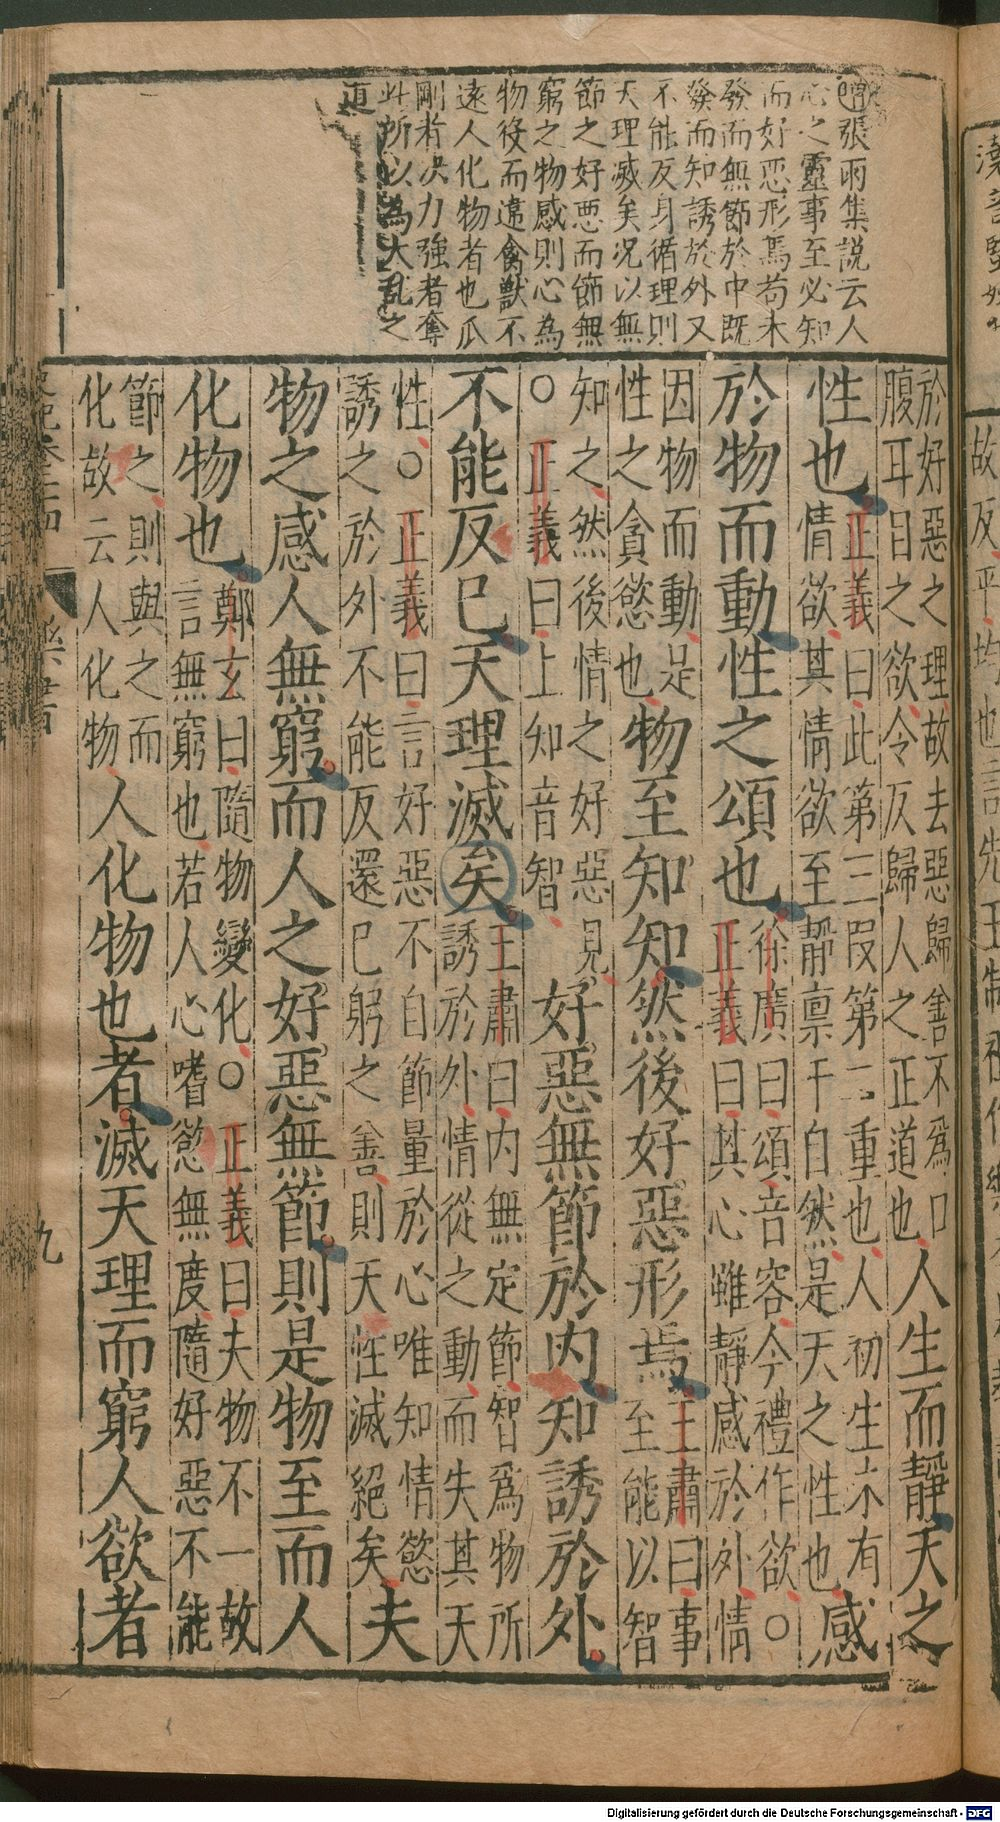 張雨集説云人
心之靈事至必知
而好惡形焉苟木
發而無節於中既
發而知誘於外又
不能反身循理則
天理滅矣况以無
節之好惡而節無
窮之物感則心為
物役而違禽獸不
遠人化物者也瓜
剛者决力強者奪
此所以為大乱之
道
於好惡之理故去惡歸善不爲口
腹耳目之欲令反歸人之正道也人生而靜天之
性也正義曰此第三段第二重也人初生未有
情欲其情欲至靜禀于自然是天之性也感
於物而動性之頌也徐廣曰頌音容今禮作欲○
正義曰其心雖靜感於外情
因物而動是
性之貪慾也物至知知然後好惡形焉王肅曰事
至能以智
知之然後情之好惡見
○正義曰上知音智好惡無節於内知誘於外
不能反已天理滅矣王肅曰内無定節智爲物所
誘於外情從之動而失其天
性○正義曰言好惡不自節量於心唯知情慾
誘之於外不能反還已躬之善則天性滅絕矣夫
物之感人無窮而人之好惡無節則是物至而人
化物也鄭玄曰隨物變化○正義曰夫物不一故
言無窮也若人心嗜慾無度隨好惡不能
節之則與之而
化故云人化物人化物也者滅天理而窮人欲者
九
故反平均也言先王制禮作樂
Digitalisierung gefördert durch die Deutsche Forschungsgemeinschaft - DFG